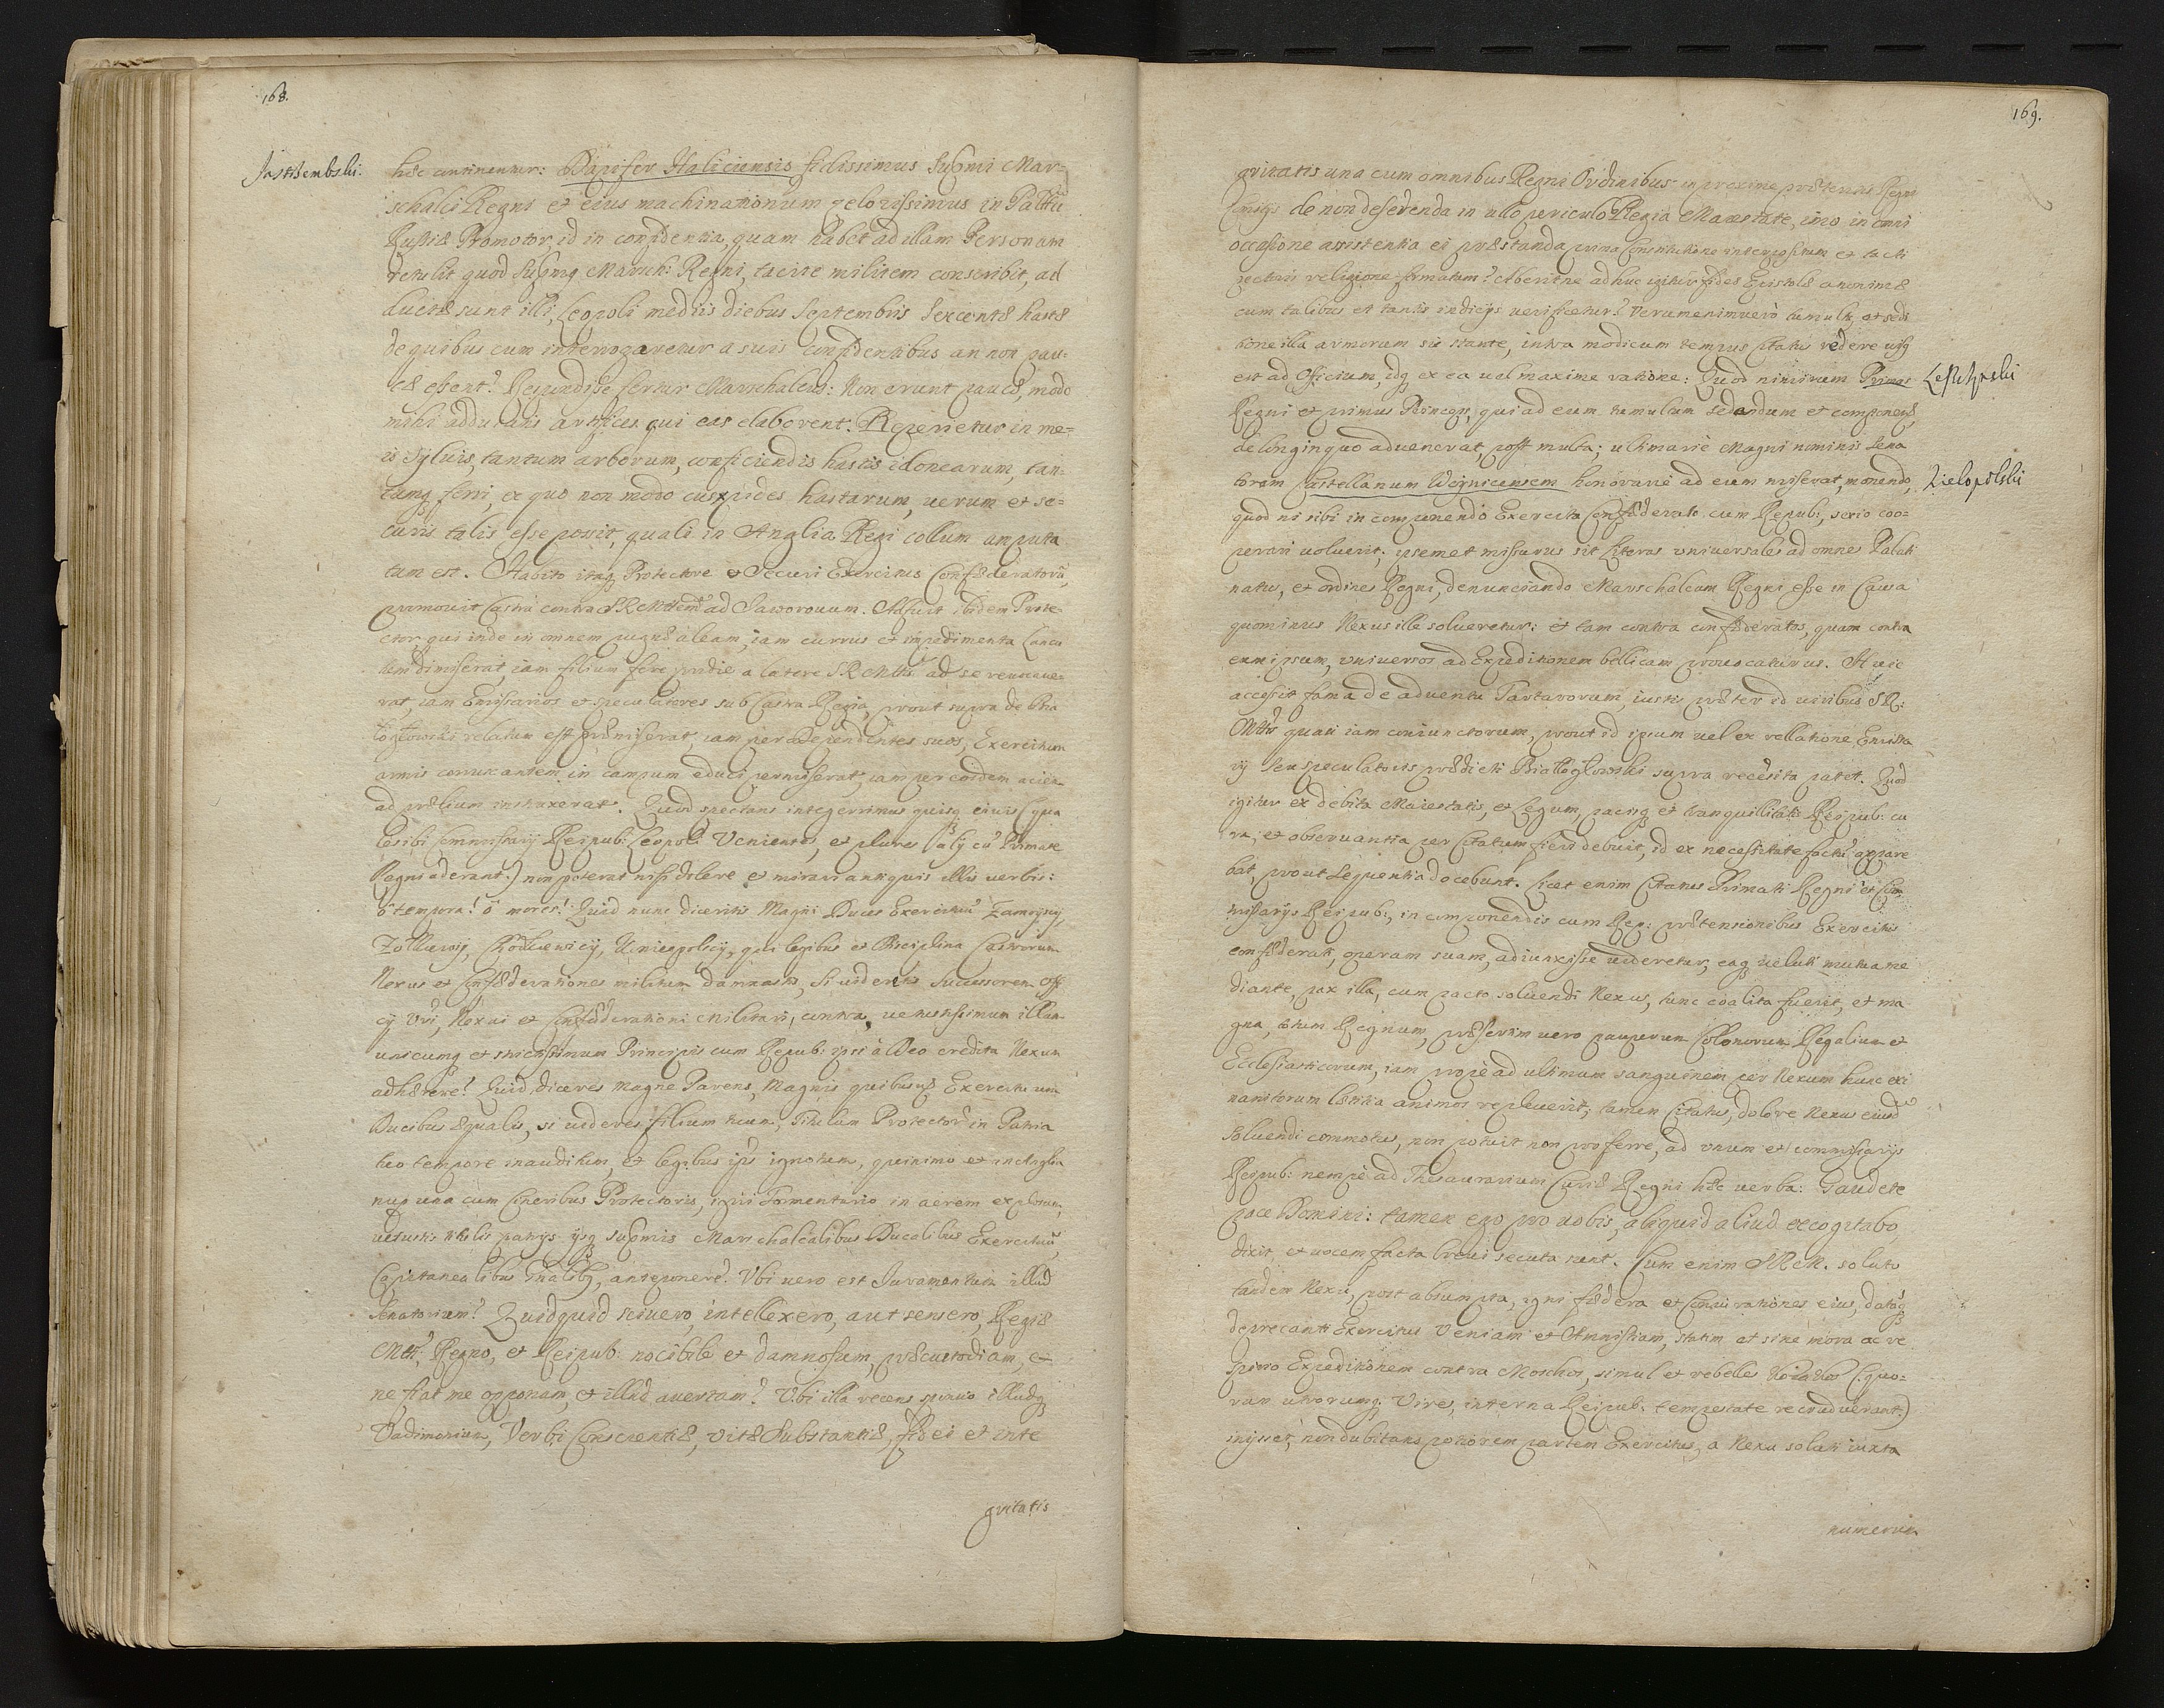 168.
Jastrembski.
hæc continentur: Dapifer Haliciensis fidissimus Supmi Mar-
schalci Regni et eius machinationum zelotissimus in Pallu
Russiæ Promotor, id in confidentia, quam habet ad illam Personam
retulit quod Supmq Marsch: Regni, tacite militem conscribit, ad
ductæ sunt illi, Leopoli mediis diebus Septembris Sexcentæ hastæ
de quibus cum interrogaretur a suis confidentibus an non pau-
cæ essent? Respondisse fertur Marschalcus: Non erunt paucæ, modo
mihi adducatis artifices qui eas elaborent. Reperietur in me-
is sylvis, tantum arborum, conficiendis hastis idonearum, tan-
tumq ferri, ex quo non modo cuspides hastarum, verum et se-
curis talis esse possit, quali in Anglia Regi collum amputa
tum est. Habito itaq Protectore et Securi Exercitus Confæderatorū,
promovit Castra contra SRMttem ad Jaworovum. Adfuit ibidem Prote-
ctor, qui inde in omnem pugnæ aleam, iam currus et impedimenta Lancu
tum dimiserat, iam filium fere pridie a latere SRMttis ad se revocave-
rat, iam Emissarios et speculatores sub Castra Regia, prout supra de Bia
łogłowski relatum est præmiserat, iam per Dependentes suos, Exercitum
armis coruscantem in campum educi permiserat, iam per eosdem aciem
ad prælium instruxerat. Quod spectans integerrimus quisq civis (qua
les ibi Commissarij Reipub: Leopoli Venientes, et plures alij cū Primate
Regni aderant.) non poterat nisi dolere et mirari antiquis illis verbis:
ô tempora! ô mores! Quid nunc diceretis Magni Duces Exercituū Zamoyscij,
Zołkiewij, Chodkiewicij, Koniecpolscij, qui legibus et Disciplina Castrorum
Nexus et Confæderationes militum damnastis, si videretis Successorem Offi
cij Vri, Nexui et Confæderationi Militari, contra, vetustissimum illum
unicumq et strictissimum Principis cum Repub: ipsi à Deo credita Nexum
adhærere? Quid diceres Magne Parens, Magnis quibusvis Exercituum
Ducibus æqualis, si videres filium tuum, Titulum Protectoris in Patria
tuo tempore inauditum, et legibus ipsis ignotum, quinimo et in Anglia
nup una cum Cineribus Protectoris, igni tormentario in aerem explosum,
vetustis titulis patrijs ijsq supmis Marschalcalibus Ducalibus Exercituū,
Capitanealibus Gnalibq, anteponere? Vbi vero est Juramentum illud
Senatorium? Quidquid scivero, intellexero, aut sensero, Regiæ
Mtti, Regno, et Reipub: nocibile et damnosum, præcustodiam, et
ne fiat me opponam, et illud avertam? Vbi illa recens sponsio illudq
Vadimonium, Verbi Conscientiæ, Vitæ Substantiæ, fidei et inte
gritatis
169.
gritatis una cum omnibus Regni Ordinibus in proxime præteritis Regni
Comitijs de non deserenda in ullo periculo Regia Maiestate, imo in omni
occasione assistentia ei præstanda, prima Constitutione interpositum et tacti
pectoris religione firmatum? Aberitne adhuc igitur fides Epistolæ anonimæ
cum talibus et tantis indicijs verificetur? Verumenimvero tumultu et sedi
tione illa armorum sic stante, intra modicum tempus Citatus redere visq
est ad Officium, idq ex ea vel maxime ratione: Quod nimirum Primas
Leszczynski
Regni et primus Princeps, qui ad eum tumultum sedandum et componendū
de longinquo advenerat, post multa; ultimarie Magni nominis Sena
torem Castellanum Woynicensem honorarie ad eum miserat, monendo,
Wielopolski
quod ni sibi in componendo Exercitu Confæderato cum Repub:, serio coo-
perari voluerit, ipsemet missurus sit Literas universales ad omnes Palati
natus, et ordines Regni, denunciando Marschalcum Regni esse in Causa
quominus Nexus ille solveretur: et tam contra confæderatos, quam contra
eum ipsum, universos ad Expeditionem bellicam provocaturus. Huic
accessit fama de adventu Tartarorum, iustis præter id viribus SR:
Mttis quasi iam coniunctorum, prout id ipsum vel ex rellatione Emissa
rij seu speculatoris prædicti Białłogłowski supra recēsita patet. Quod
igitur ex debita Maiestatis, et Legum, pacisq et tranquillitatis Reipub: cu
ra, et observantia per Citatum fieri debuit, id ex necessitate factū appare
bat, prout sequentia docebunt. Licet enim Citatus Primati Regni et Com
missarijs Reipub:, in componendis cum Rep: prætensionibus Exercitus
confæderati, operam suam, adiunxisse videretur, eaq veluti mutua me
diante, pax illa, cum pacto solvendi Nexus, tunc coalita fuerit, et ma
gna, totum Regnum, præsertim vero pauperum Colonorum Regalium et
Ecclesiasticorum, iam propè ad ultimum sanguinem per Nexum hunc exi
nanitorum lætitia animos repleverit; tamen Citatus, dolore Nexus eiusd
solvendi commotus, non potuit non proferre, ad unum et commissarijs
Reipub: nempè ad Thesaurarium Curiæ Regni hæc verba: Gaudete
pace Domini: tamen ego pro vobis, aliquid aliud excogitabo,
dixit et vocem facta brevi secuta sunt. Cum enim SRM. soluto
tandem Nexu, post absumpta, igni fædera et Coniurationes eius, datāq
deprecanti Exercitus Veniam et Amnistiam, statim et sine mora ac re
spiro Expeditionem contra Moschos, simul et rebelles Kozakos (quo-
rum utrorumq Vires, interna Reipub: tempestate recruduerant.)
inijsset, non dubitans potiorem partem Exercitus, a Nexu soluti iuxta
numerum